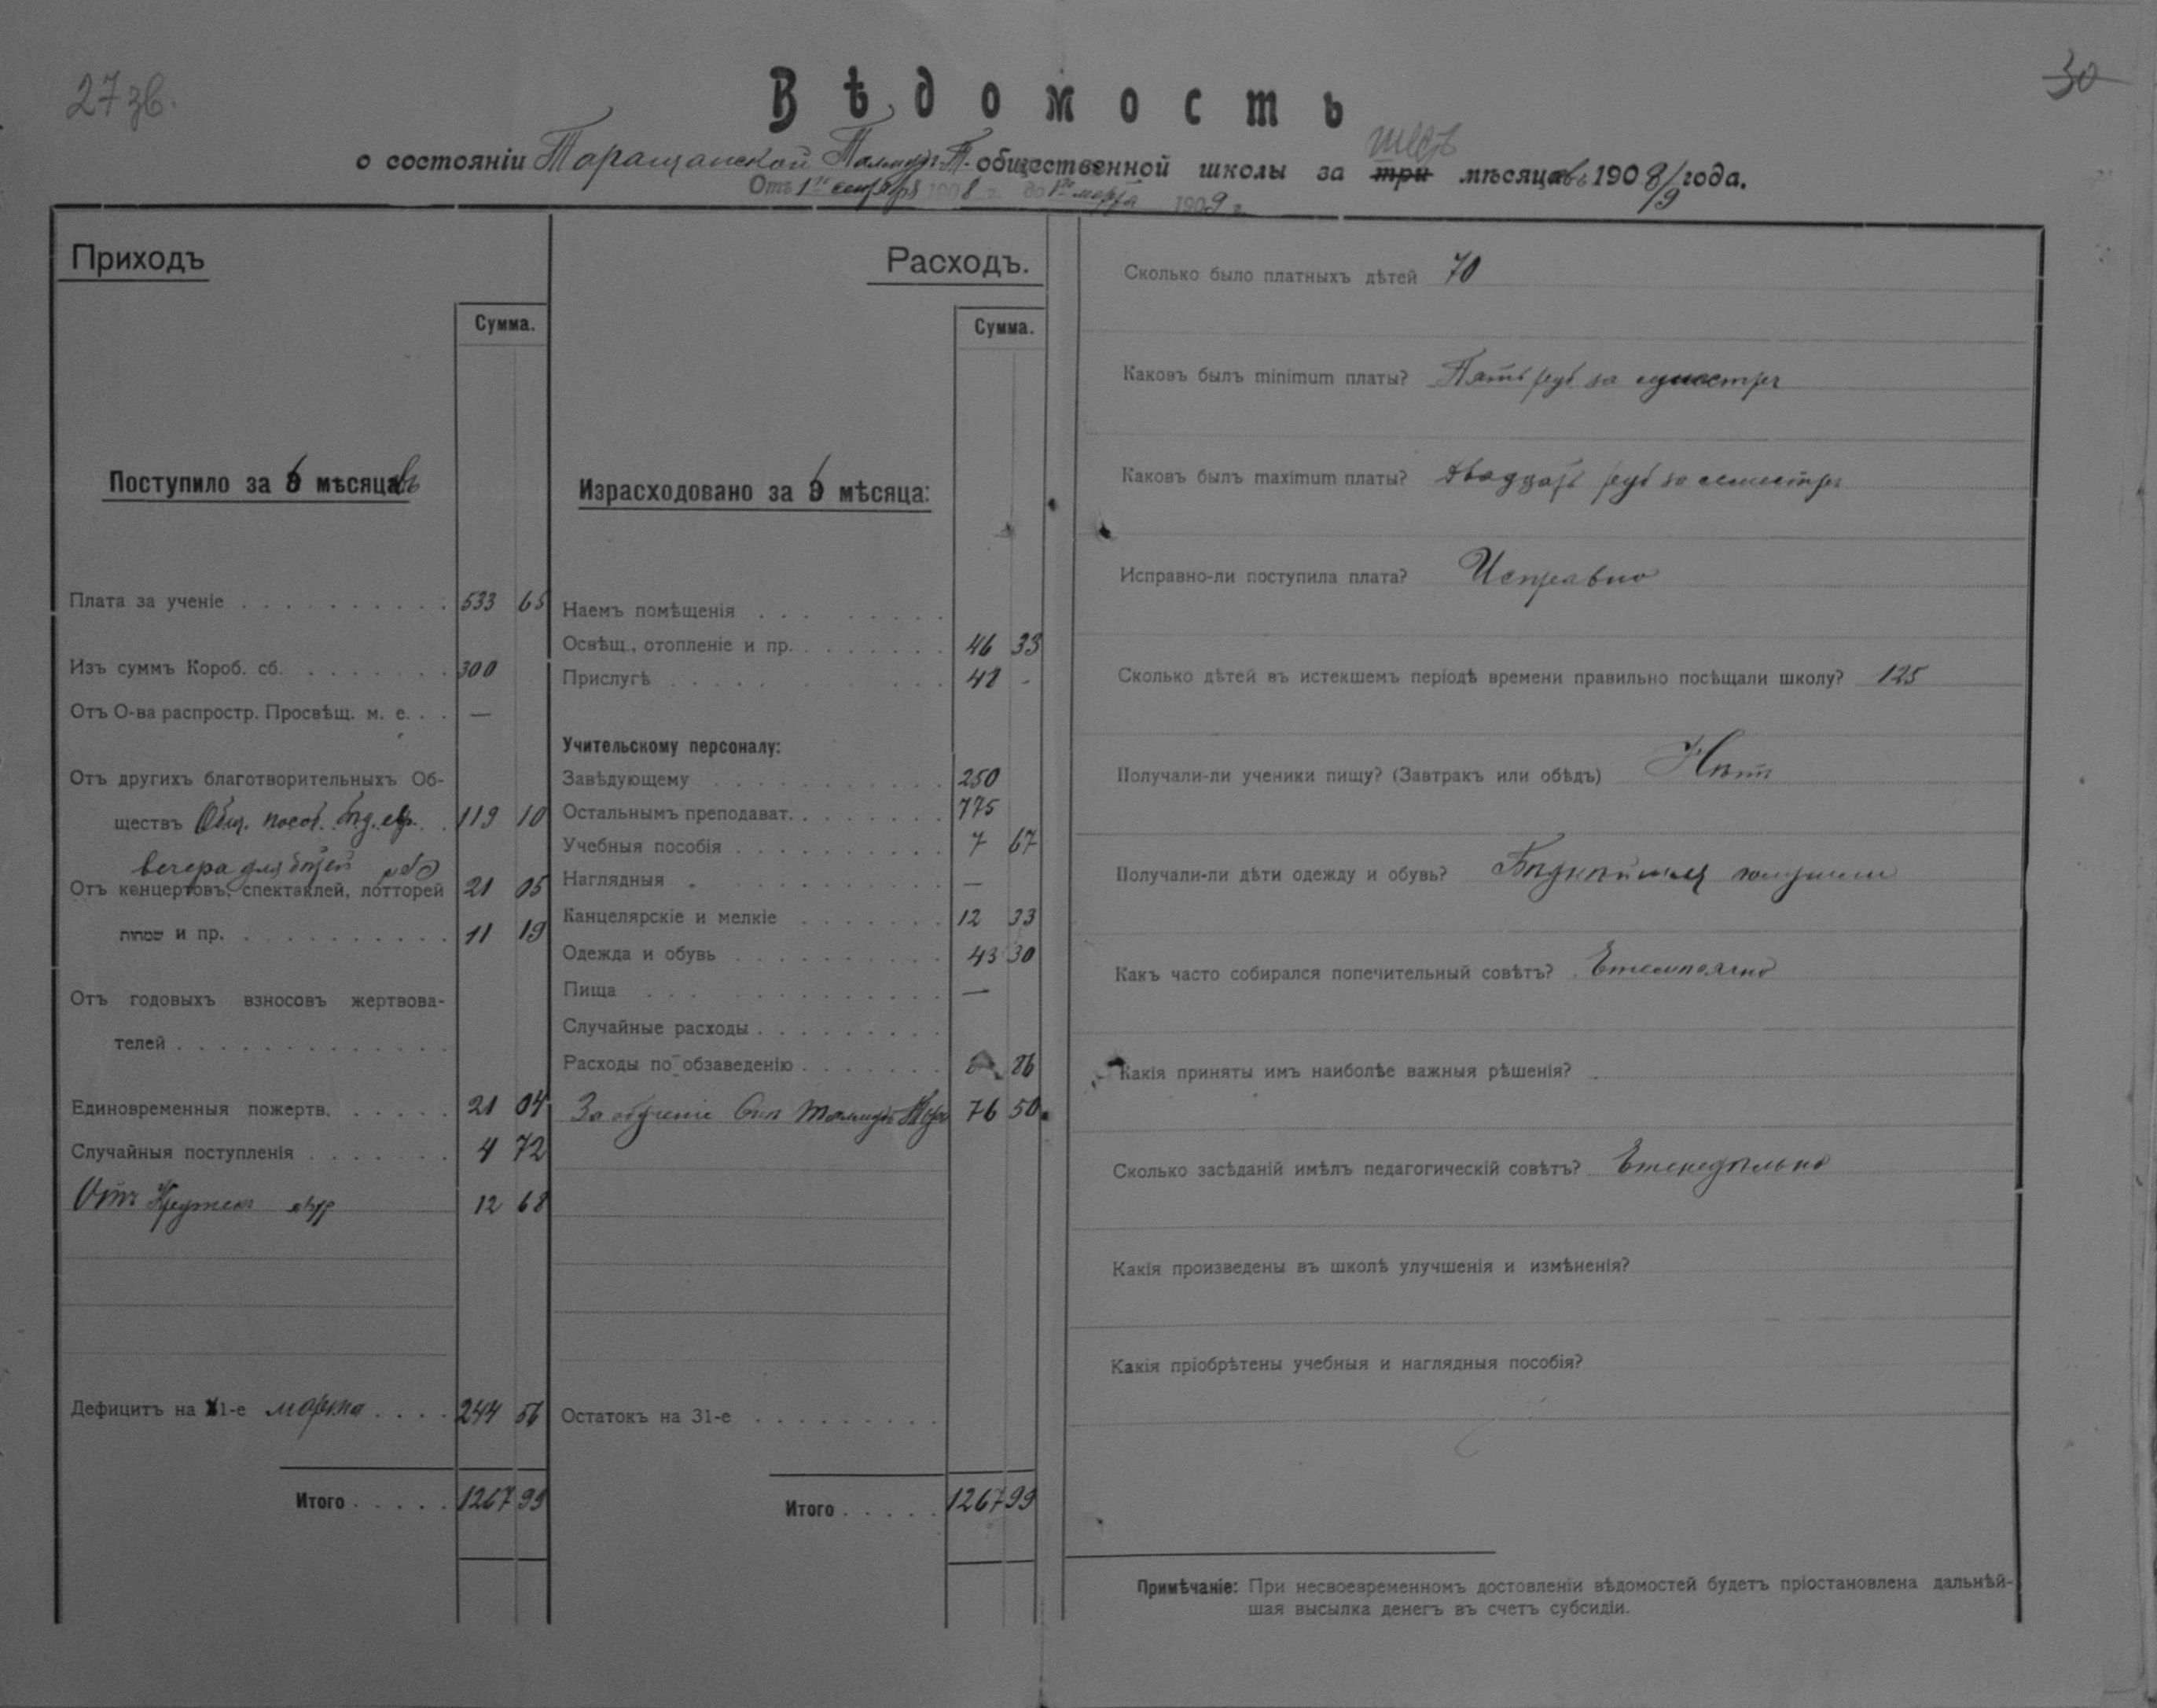 27 зв.
30
Вѣдомость
шесть
о состояніи Таращанской Талмудъ-Т. общественной школы за три мѣсяцевъ 1908/9 года.
Отъ 1го сентября 1908 г. до 1го марта 1909 г.
Приходъ
Сумма.
Поступило за 6 мѣсяцевъ
Плата за ученіе . . . . . . . . . . 533 65
Изъ суммъ Короб. сб. . . . . . . . 300
Отъ О-ва распростр. Просвѣщ. м. е. . . —
Отъ другихъ благотворительныхъ Об-
ществъ Общ. пособ. бѣд. евр. . 119 10
вечера для дѣтей
Отъ концертовъ, спектаклей, лотторей 21 05
שמחות и пр. . . . . . . . . . . 11 19
Отъ годовыхъ взносовъ жертвова-
телей . . . . . . . . . . . . .
Единовременныя пожертв. . . . . . 21 04
Случайныя поступленія . . . . . . . 4 72
Отъ Кружек 12 68
Дефицитъ на 1-е марта . . . . 244 56
Итого . . . . . 1267 99
Расходъ.
Сумма.
Израсходовано за 6 мѣсяца:
Наемъ помѣщенія . . . . . . . .
Освѣщ., отопленіе и пр. . . . . . . . 46 33
Прислугѣ . . . . . . . . . . . . 48 -
Учительскому персоналу:
Завѣдующему . . . . . . . . . . . 250
Остальнымъ преподават. . . . . . . . 775
Учебныя пособія . . . . . . . . . . 7 67
Наглядныя „ . . . . . . . . . . —
Канцелярскіе и мелкіе . . . . . . . 12 33
Одежда и обувь . . . . . . . . . . 43 30
Пища . . . . . . . . . . . . . —
Случайные расходы . . . . . . . . .
Расходы по обзаведенію . . . . . . . 86
За обученіе внѣ Талмудъ Торы 76 50
Остатокъ на 31-е . . . . . . . . .
Итого . . . . . 1267 99
Сколько было платныхъ дѣтей 70
Каковъ былъ minimum платы? Пять руб за семестръ
Каковъ былъ maximum платы? Двадцать руб за семестръ
Исправно-ли поступила плата? Исправно
Сколько дѣтей въ истекшемъ періодѣ времени правильно посѣщали школу? 125
Получали-ли ученики пищу? (Завтракъ или обѣдъ) Нѣтъ
Получали-ли дѣти одежду и обувь? Бѣднѣйшія получили
Какъ часто собирался попечительный совѣтъ? Ежемѣсячно
Какія приняты имъ наиболѣе важныя рѣшенія?
Сколько засѣданій имѣлъ педагогическій совѣтъ? Еженедѣльно
Какія произведены въ школѣ улучшенія и измѣненія?
Какія пріобрѣтены учебныя и наглядныя пособія?
Примѣчаніе: При несвоевременномъ достовленіи вѣдомостей будетъ пріостановлена дальнѣй-
шая высылка денегъ въ счетъ субсидіи.